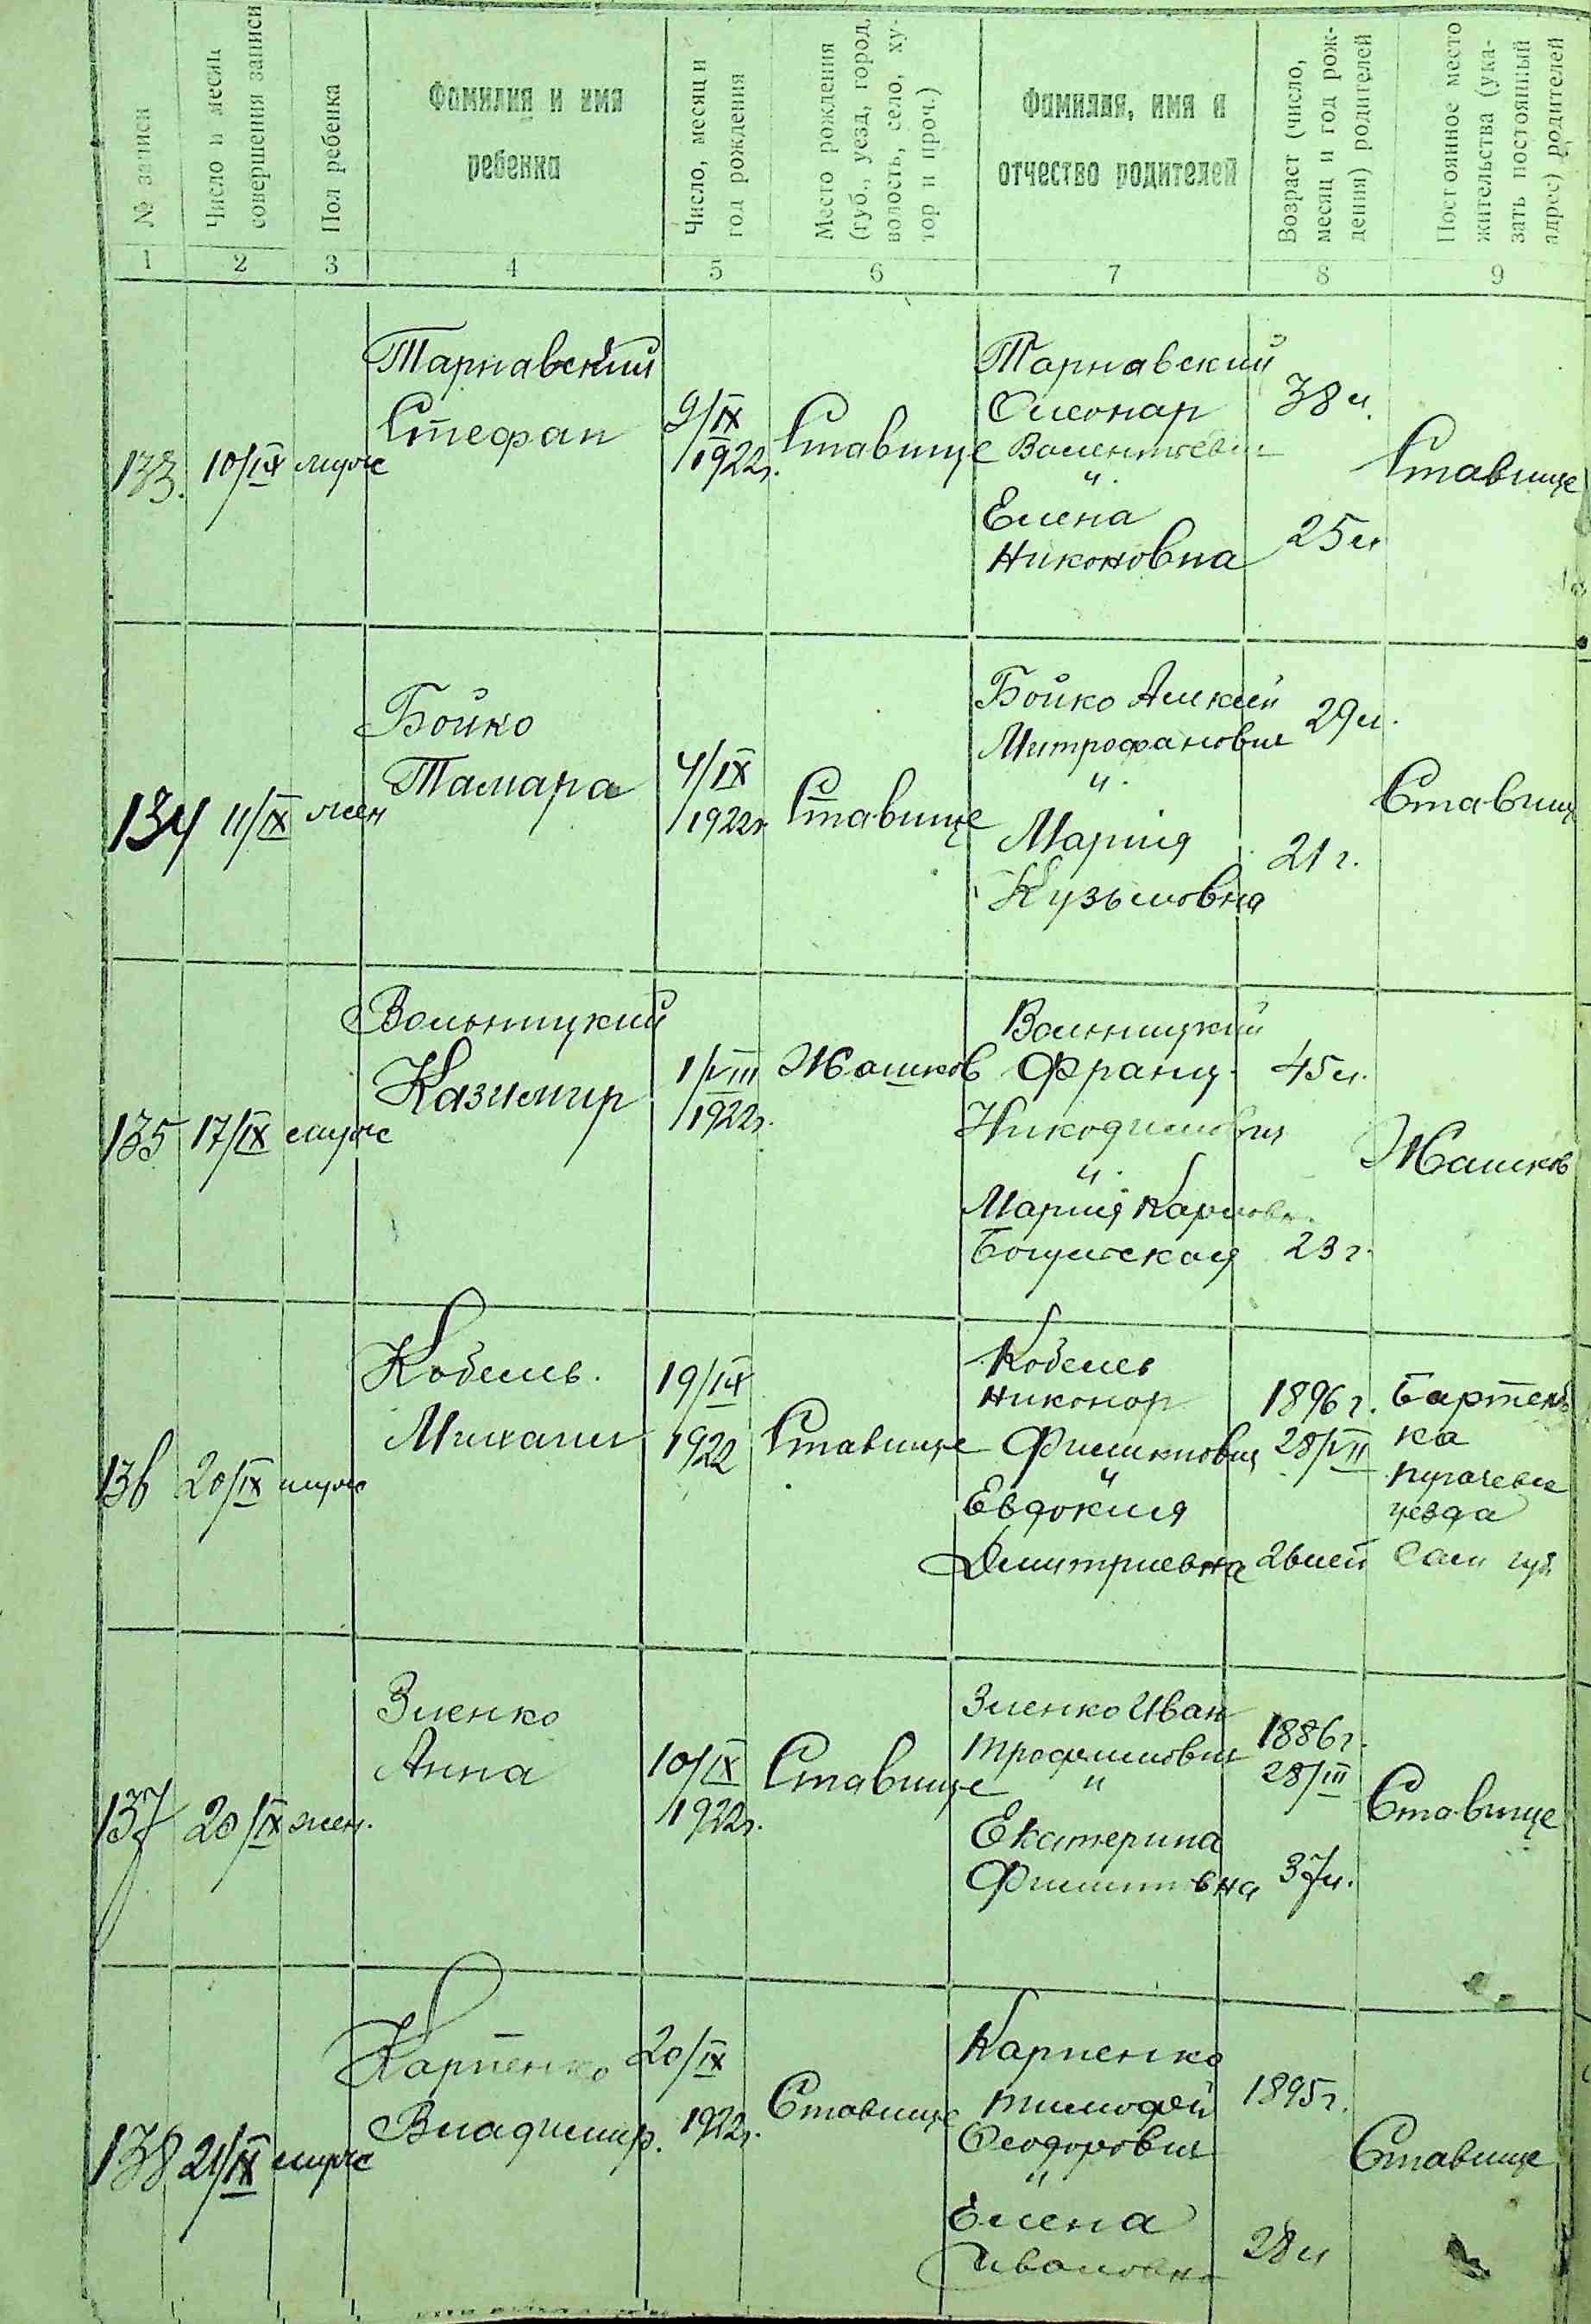 № записи
Число и месяц
совершения записи
Пол ребенка
Фамилия и имя
ребенка
Число, месяц и
год рождения
Место рождения
(губ., уезд, город,
волость, село, ху-
тор и проч.)
Фамилия, имя и
отчество родителей
Возраст (число,
месяц и год рож-
дения) родителей
Постоянное место
жительства (ука-
зать постоянный
адрес) родителей
1 2 3 4 5 6 7 8 9
133. 10/IX муж
Тарнавский
Стефан
9/IX
1922г.
Ставище
Тарнавский
Валентьевич
"
Елена
Никоновна
38 л.
25 л
Ставище
134 11/IX жен
Бойко
Тамара
4/IX
1922г.
Ставище
Бойко
Митрофанович
"
Мария
Кузьмовна
29 л.
21 г.
Ставище
135 17/IX муж
Вольницкий
Казимир
1/VIII
1922г.
Жашков
Вольницкий
Франц
Никодимович
"
Мария Карловн.
45 л.
23 г.
Жашков
136 20/IX муж
Кобель.
Михаил
19/IX
1922
Ставище
Кобель
Никонор
Филиппович
"
Евдокия
Дмитриевна
1896 г.
28/VII
26 лей
ка
уезда
Сам губ
137 20/IX жен.
Зленко
Анна
10/IX
1922г.
Ставище
Зленко Иван
Трофимович
"
Екатерина
Филипповна
1886г.
28/III
37 л.
Ставище
138 21/IX муж
Карпенко
Владимир.
20/IX
1922г.
Ставище
Карпенко
Тимофей
Феодорович
"
Елена
Ивановна
1895г.
28 л
Ставище